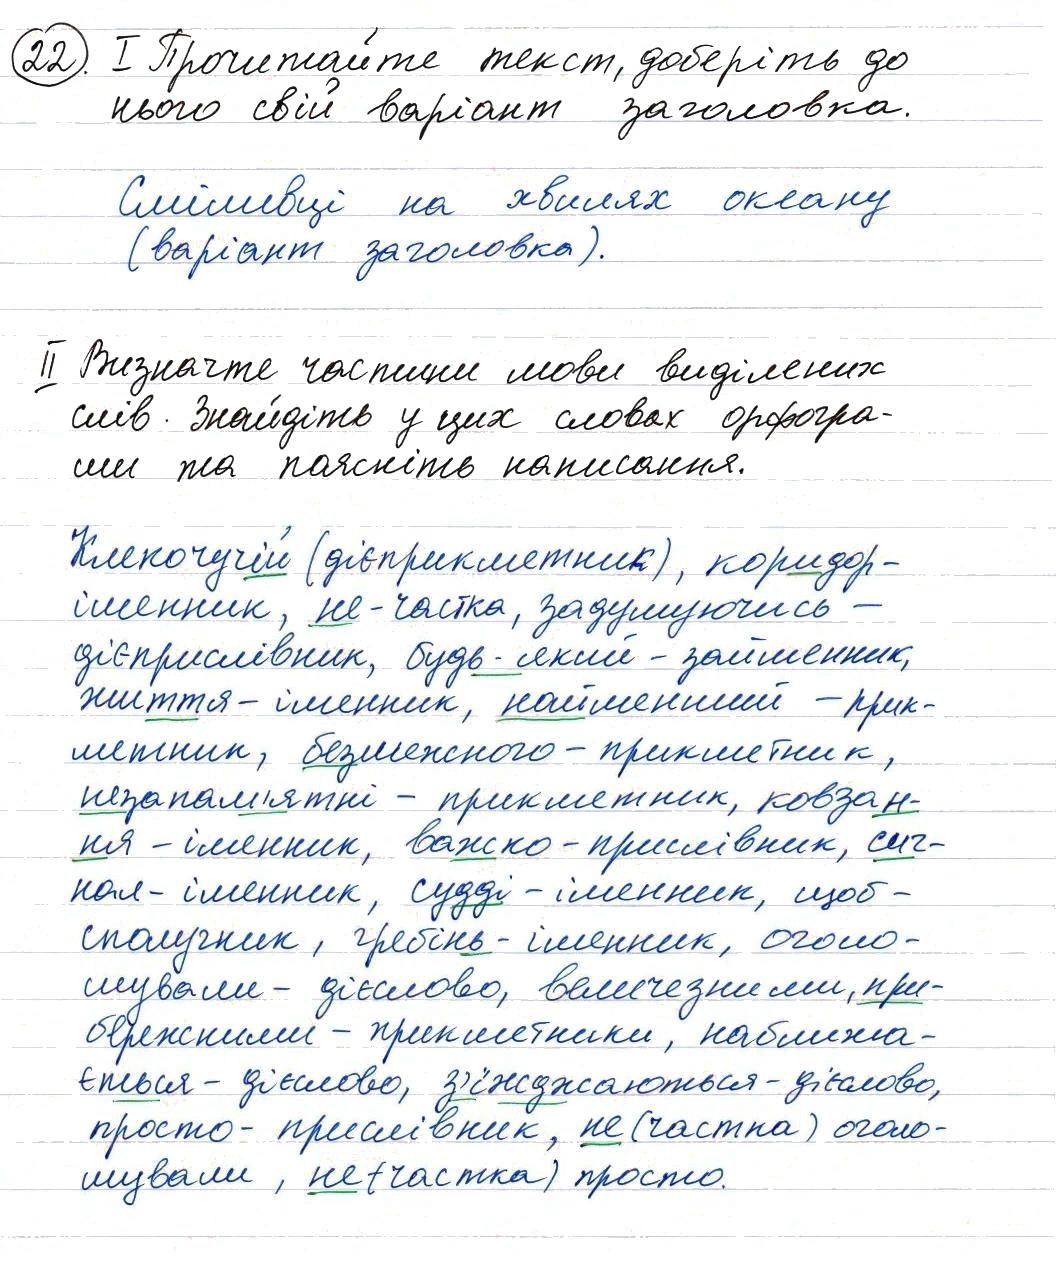 22. I Прочитайте текст, доберіть до
нього свій варіант заголовка.
Сміливці на хвилях океану
(варіант заголовка).
II Визначте частини мови виділених
слів. Знайдіть у цих словах орфогра-
ми та поясніть написання.
Клекочучій (дієприкметник), коридор-
іменник, не-частка, задумуючись –
дієприслівник, будь-який – займенник,
життя – іменник, найменший – прик-
метник, безмежного – прикметник,
незапам'ятні – прикметник, ковзан-
ня – іменник, важко – прислівник, сиг-
нал – іменник, судді – іменник, щоб –
сполучник, гребінь – іменник, оголо-
шували – дієслово, величезними, при-
бережними – прикметники, наближа-
ється – дієслово, з'їжджаються – дієслово,
просто – прислівник, не (частна) оголо-
шували, не (частка) просто.